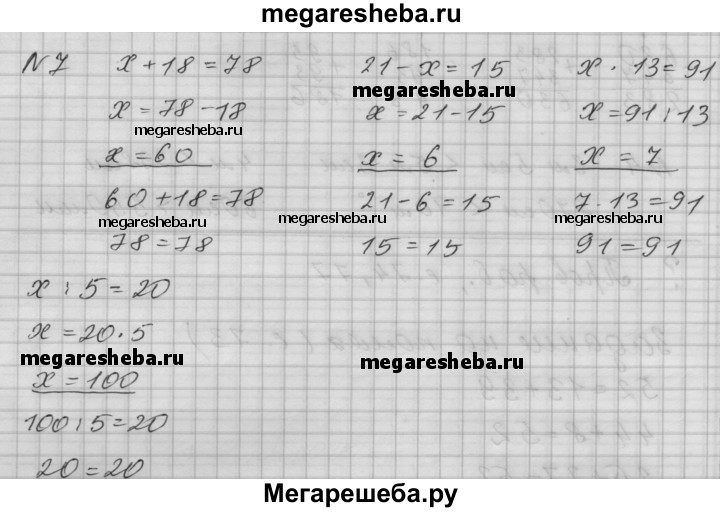 megaresheba.ru
N 7
x + 18 = 78
x = 78 - 18
megaresheba.ru
x = 60
60 + 18 = 78
megaresheba.ru
78 = 78
21 - x = 15
megaresheba.ru
x = 21 - 15
x = 6
21 - 6 = 15
megaresheba.ru
15 = 15
x · 13 = 91
x = 91 : 13
megaresheba.ru
x = 7
7 · 13 = 91
megaresheba.ru
91 = 91
x : 5 = 20
x = 20 · 5
megaresheba.ru
megaresheba.ru
x = 100
100 : 5 = 20
20 = 20
Мегарешеба.ру